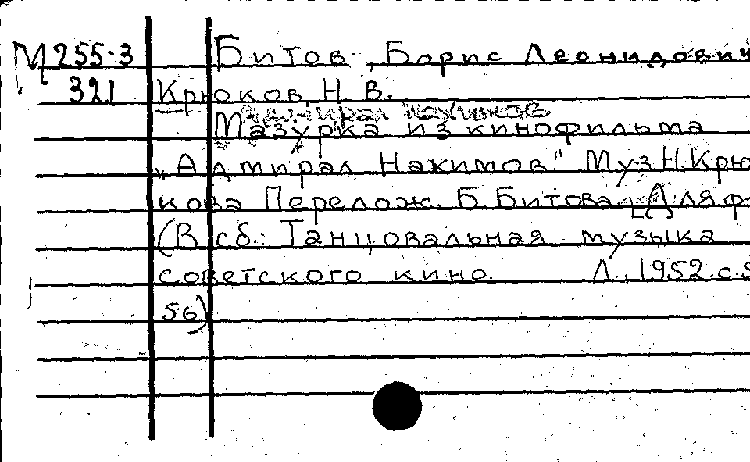 М 255-3 Битов, Борис Леонидович
321 Крюков Н. В.
Адмирал Нахимов
Мазурка из кинофильма
„Адмирал Нахимов" Муз Н. Крю
кова Перелож. Б. Битова. [Для ф
(В сб.: Танцовальная музыка
советского кино. Л., 1952 с. 5
56)